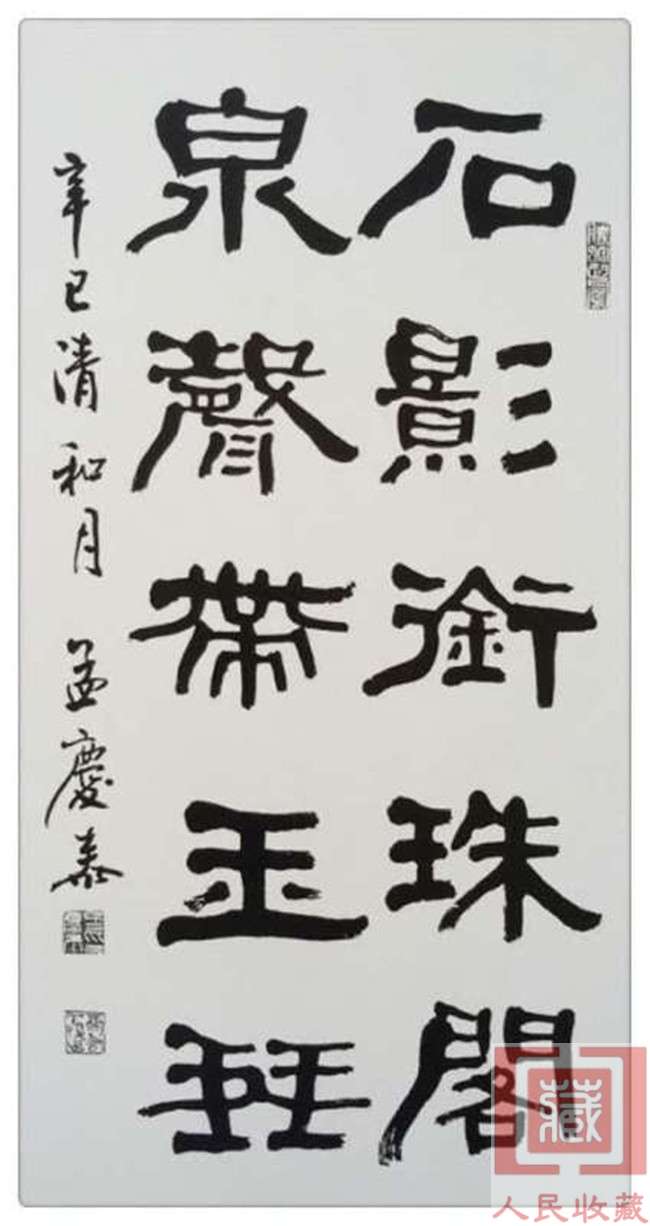 石影銜珠閣
泉聲帶玉琴
辛巳清和月 孟慶泰
藏
人民收藏